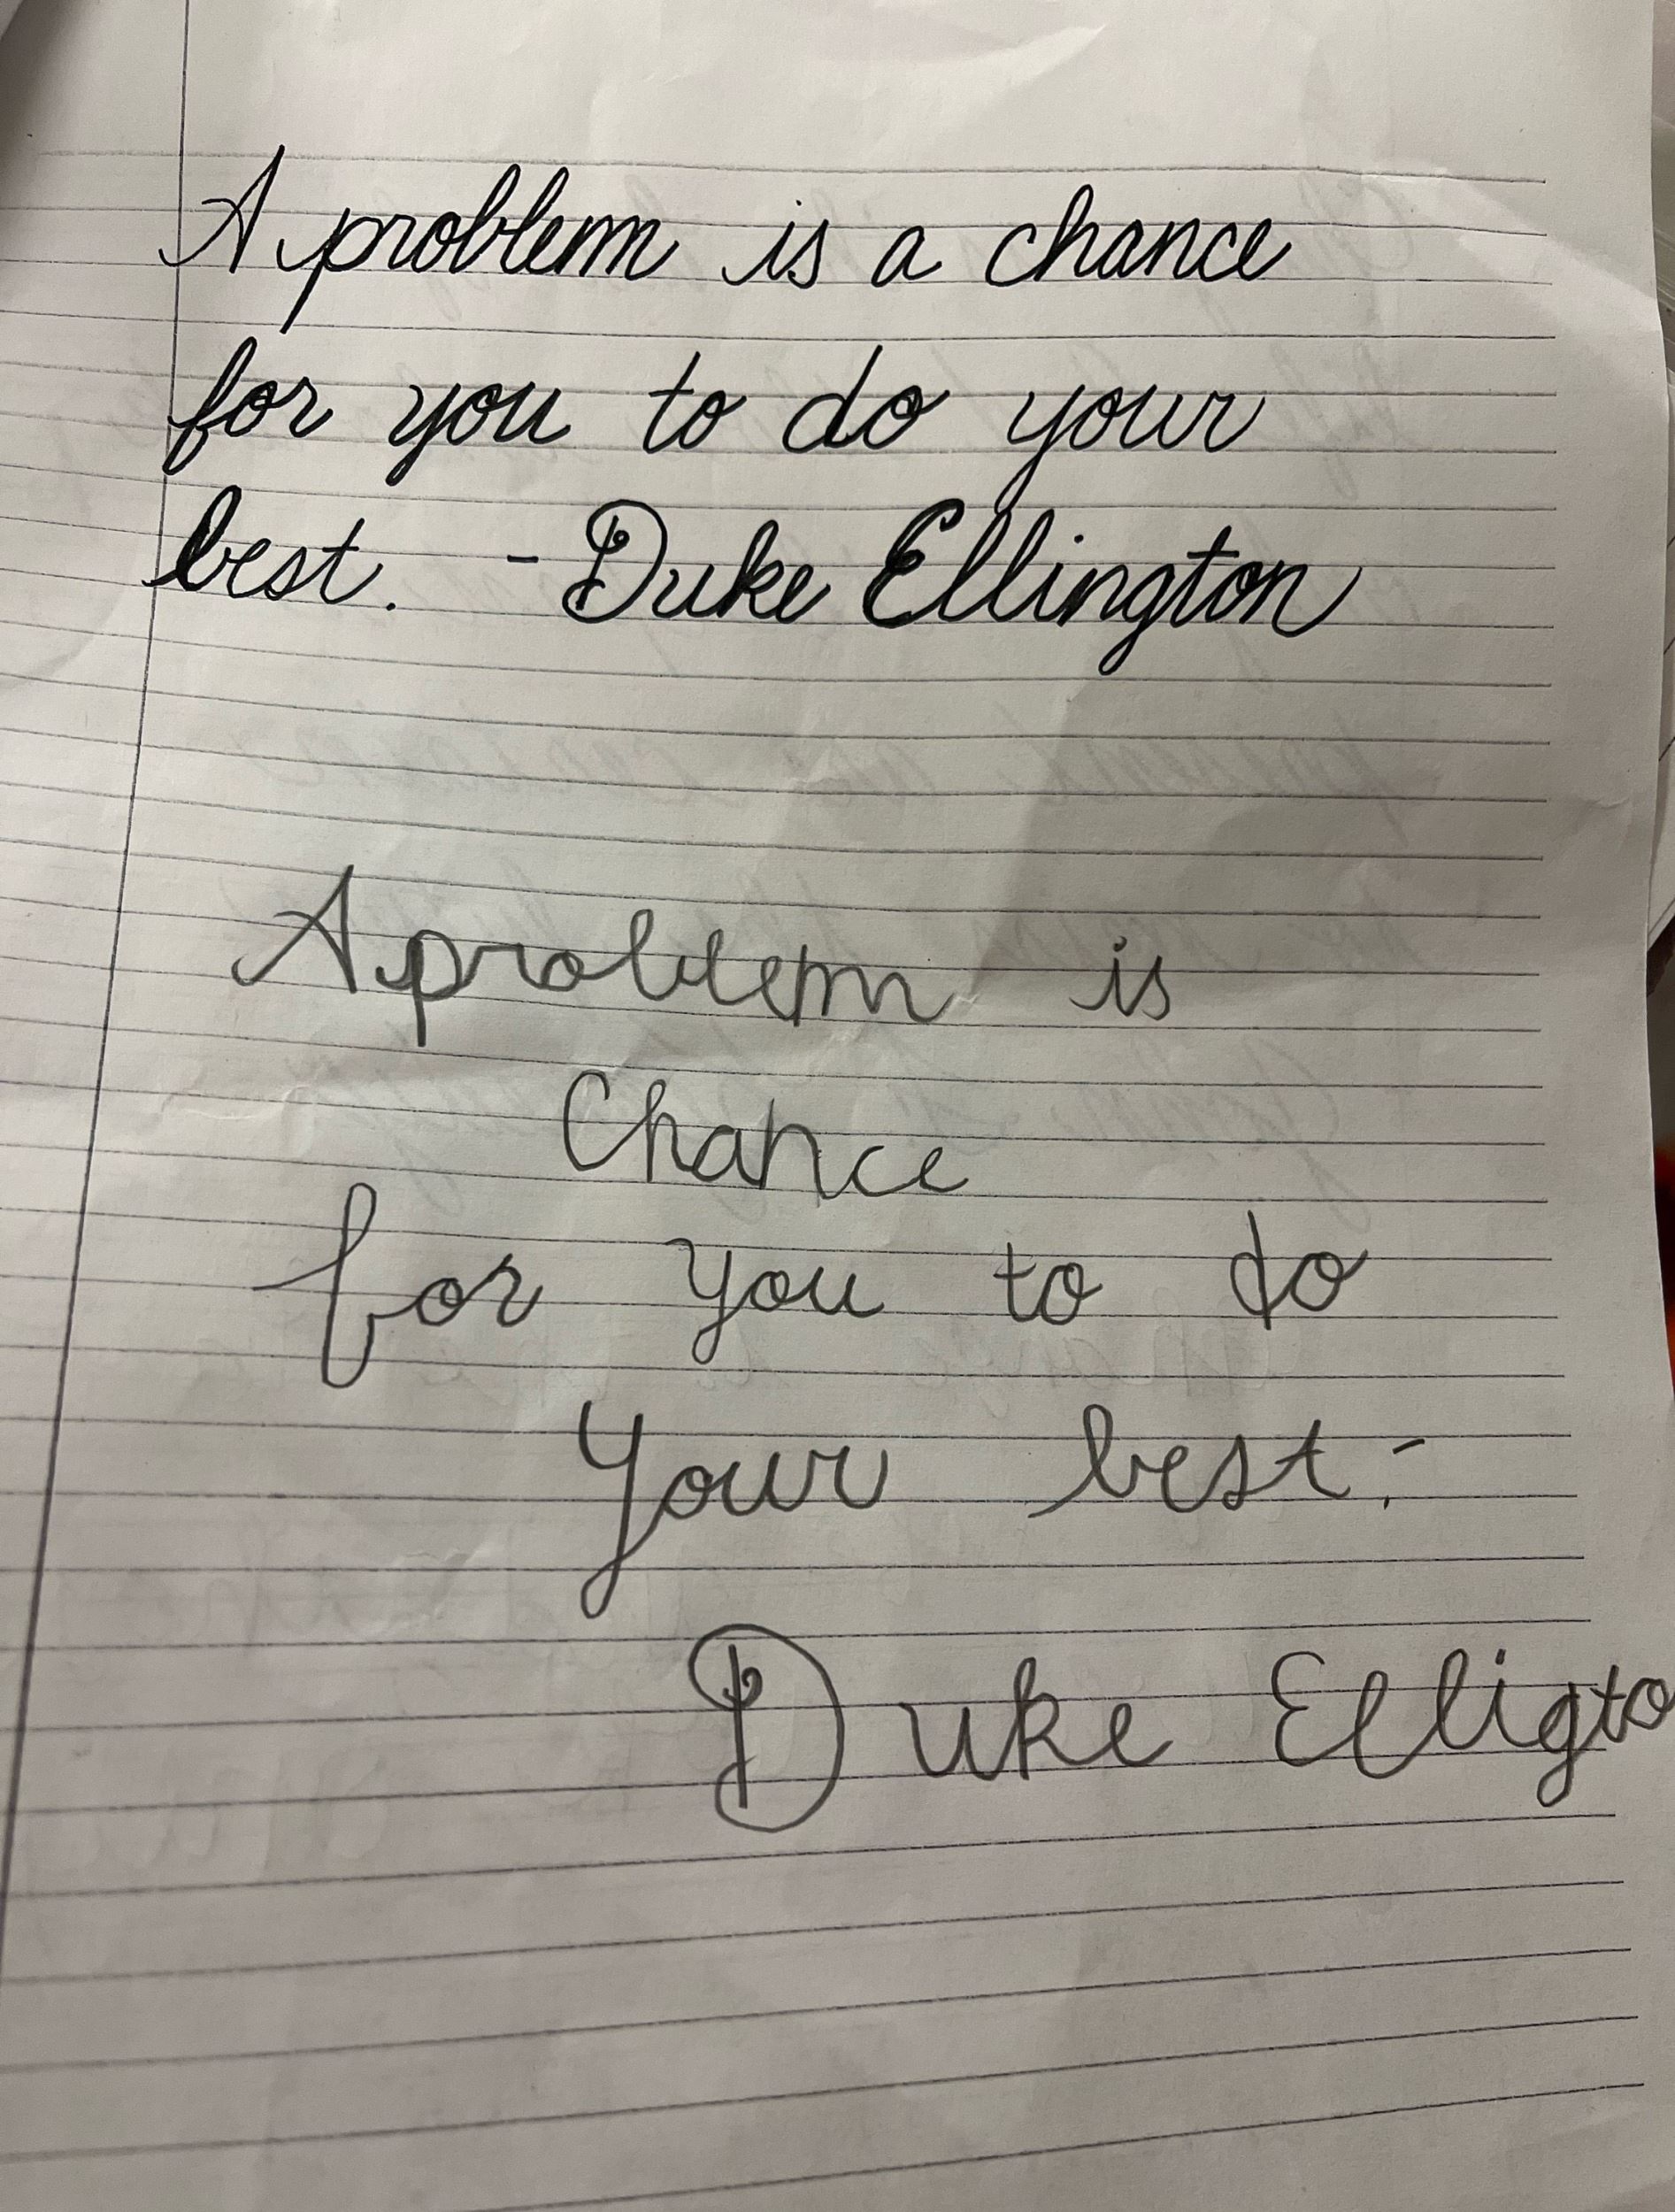 A problem is a chance
for you to do your
best. - Duke Ellington
A problem is
Chance
for you to do
Your best. -
Duke Elligto